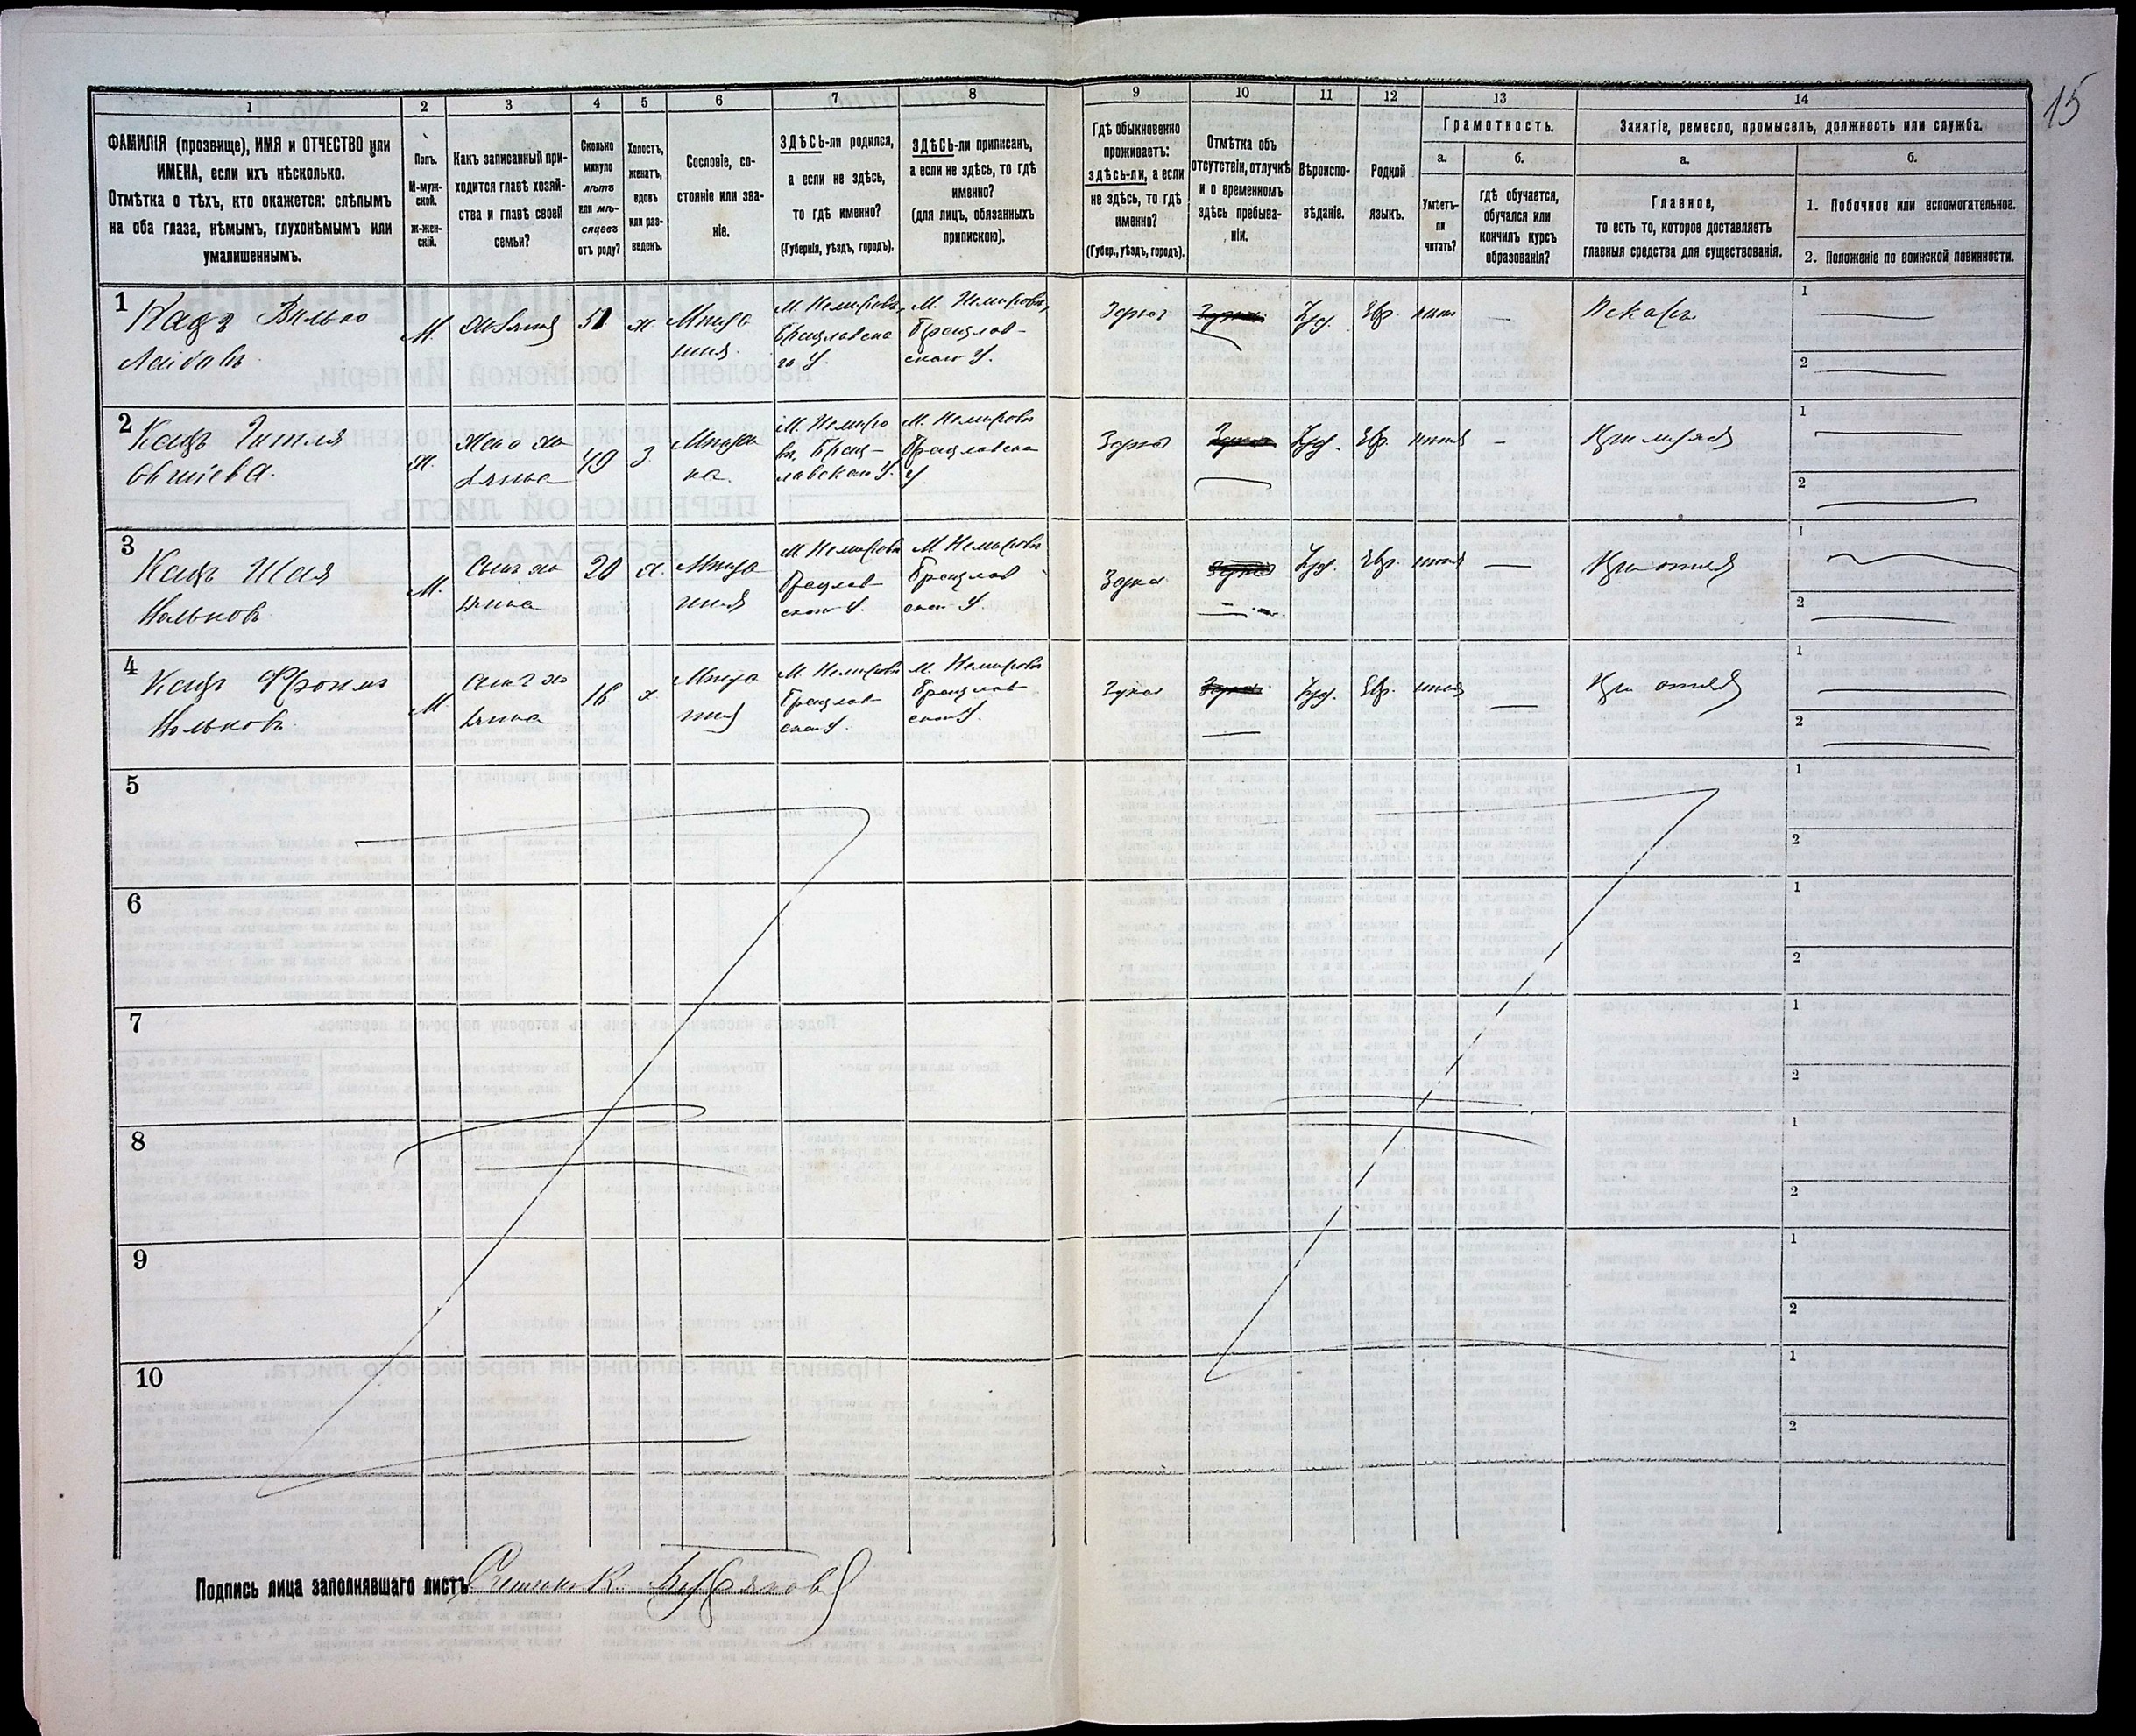 15
1 2 3 4 5 6 7 8 9 10 11 12 13 14
ФАМИЛІЯ (прозвище), ИМЯ и ОТЧЕСТВО или
ИМЕНА, если ихъ нѣсколько.
Отмѣтка о тѣхъ, кто окажется: слѣпымъ
на оба глаза, нѣмымъ, глухонѣмымъ или
умалишеннымъ.
Полъ.
М-муж-
ской.
Ж-жен-
скій.
Какъ записанный при-
ходится главѣ хозяй-
ства и главѣ своей
семьи?
Сколько
минуло
лѣтъ
или мѣ-
сяцевъ
отъ роду?
Холостъ,
женатъ,
вдовъ
или раз-
веденъ.
Сословіе, со-
стояніе или зва-
ніе.
ЗДѢСЬ-ли родился,
а если не здѣсь,
то гдѣ именно?
(Губернія, уѣздъ, городъ).
ЗДѢСЬ-ли приписанъ,
а если не здѣсь, то гдѣ
именно?
(для лицъ, обязанныхъ
припискою).
Гдѣ обыкновенно
проживаетъ:
здѣсь-ли, а если
не здѣсь, то гдѣ
именно?
(Губер., уѣздъ, городъ).
Отмѣтка объ
отсутствіи, отлучкѣ
и о временномъ
здѣсь пребыва-
ніи.
Вѣроиспо-
вѣданіе.
Родной
языкъ.
Грамотность.
а.
Умѣетъ-
ли
читать?
б.
гдѣ обучается,
обучался или
кончилъ курсъ
образованія?
Занятіе, ремесло, промыселъ, должность или служба.
а.
Главное,
то есть то, которое доставляетъ
главныя средства для существованія.
б.
1. Побочное или вспомогательное.
2. Положеніе по воинской повинности.
1
Кацъ Волько
Лейбовъ
М. хозяинъ 51 ж. Мѣща
нинъ
М. Немировъ,
Брацлавска
го У.
М. Немировъ,
Брацлав-
скаго У.
Здѣсь Іуд. Евр. нѣтъ — Пекарь
1
2
2
Кацъ Гитля
Овшіева.
Ж. Жена хо
зяина 49 З. Мѣщан
ка.
М. Немиро
въ, Брац-
лавскаго У.
М. Немировъ
Брацлавска
У.
Здѣсь Іуд. Евр. нѣтъ — При мужѣ
1
2
3
Кацъ Шая
Вольковъ
М. Сынъ хо
зяина 20 х. Мѣща
нинъ
М. Немировъ
Брацлав-
скаго У.
М. Немировъ
Брацлав
скаго У.
Здѣсь Іуд. Евр. нѣтъ — При отцѣ
1
2
4
Кацъ Фроимъ
Вольковъ
М. Сынъ хо
зяина 16 х. Мѣща
нинъ
М. Немировъ
Брацлав-
скаго У.
М. Немировъ
Брацлав-
скаго У.
Здѣсь Іуд. Евр. нѣтъ — При отцѣ
1
2
5
1
2
6
1
2
7
1
2
8
1
2
9
1
2
10
1
2
Подпись лица заполнявшаго листъ Счетчикъ